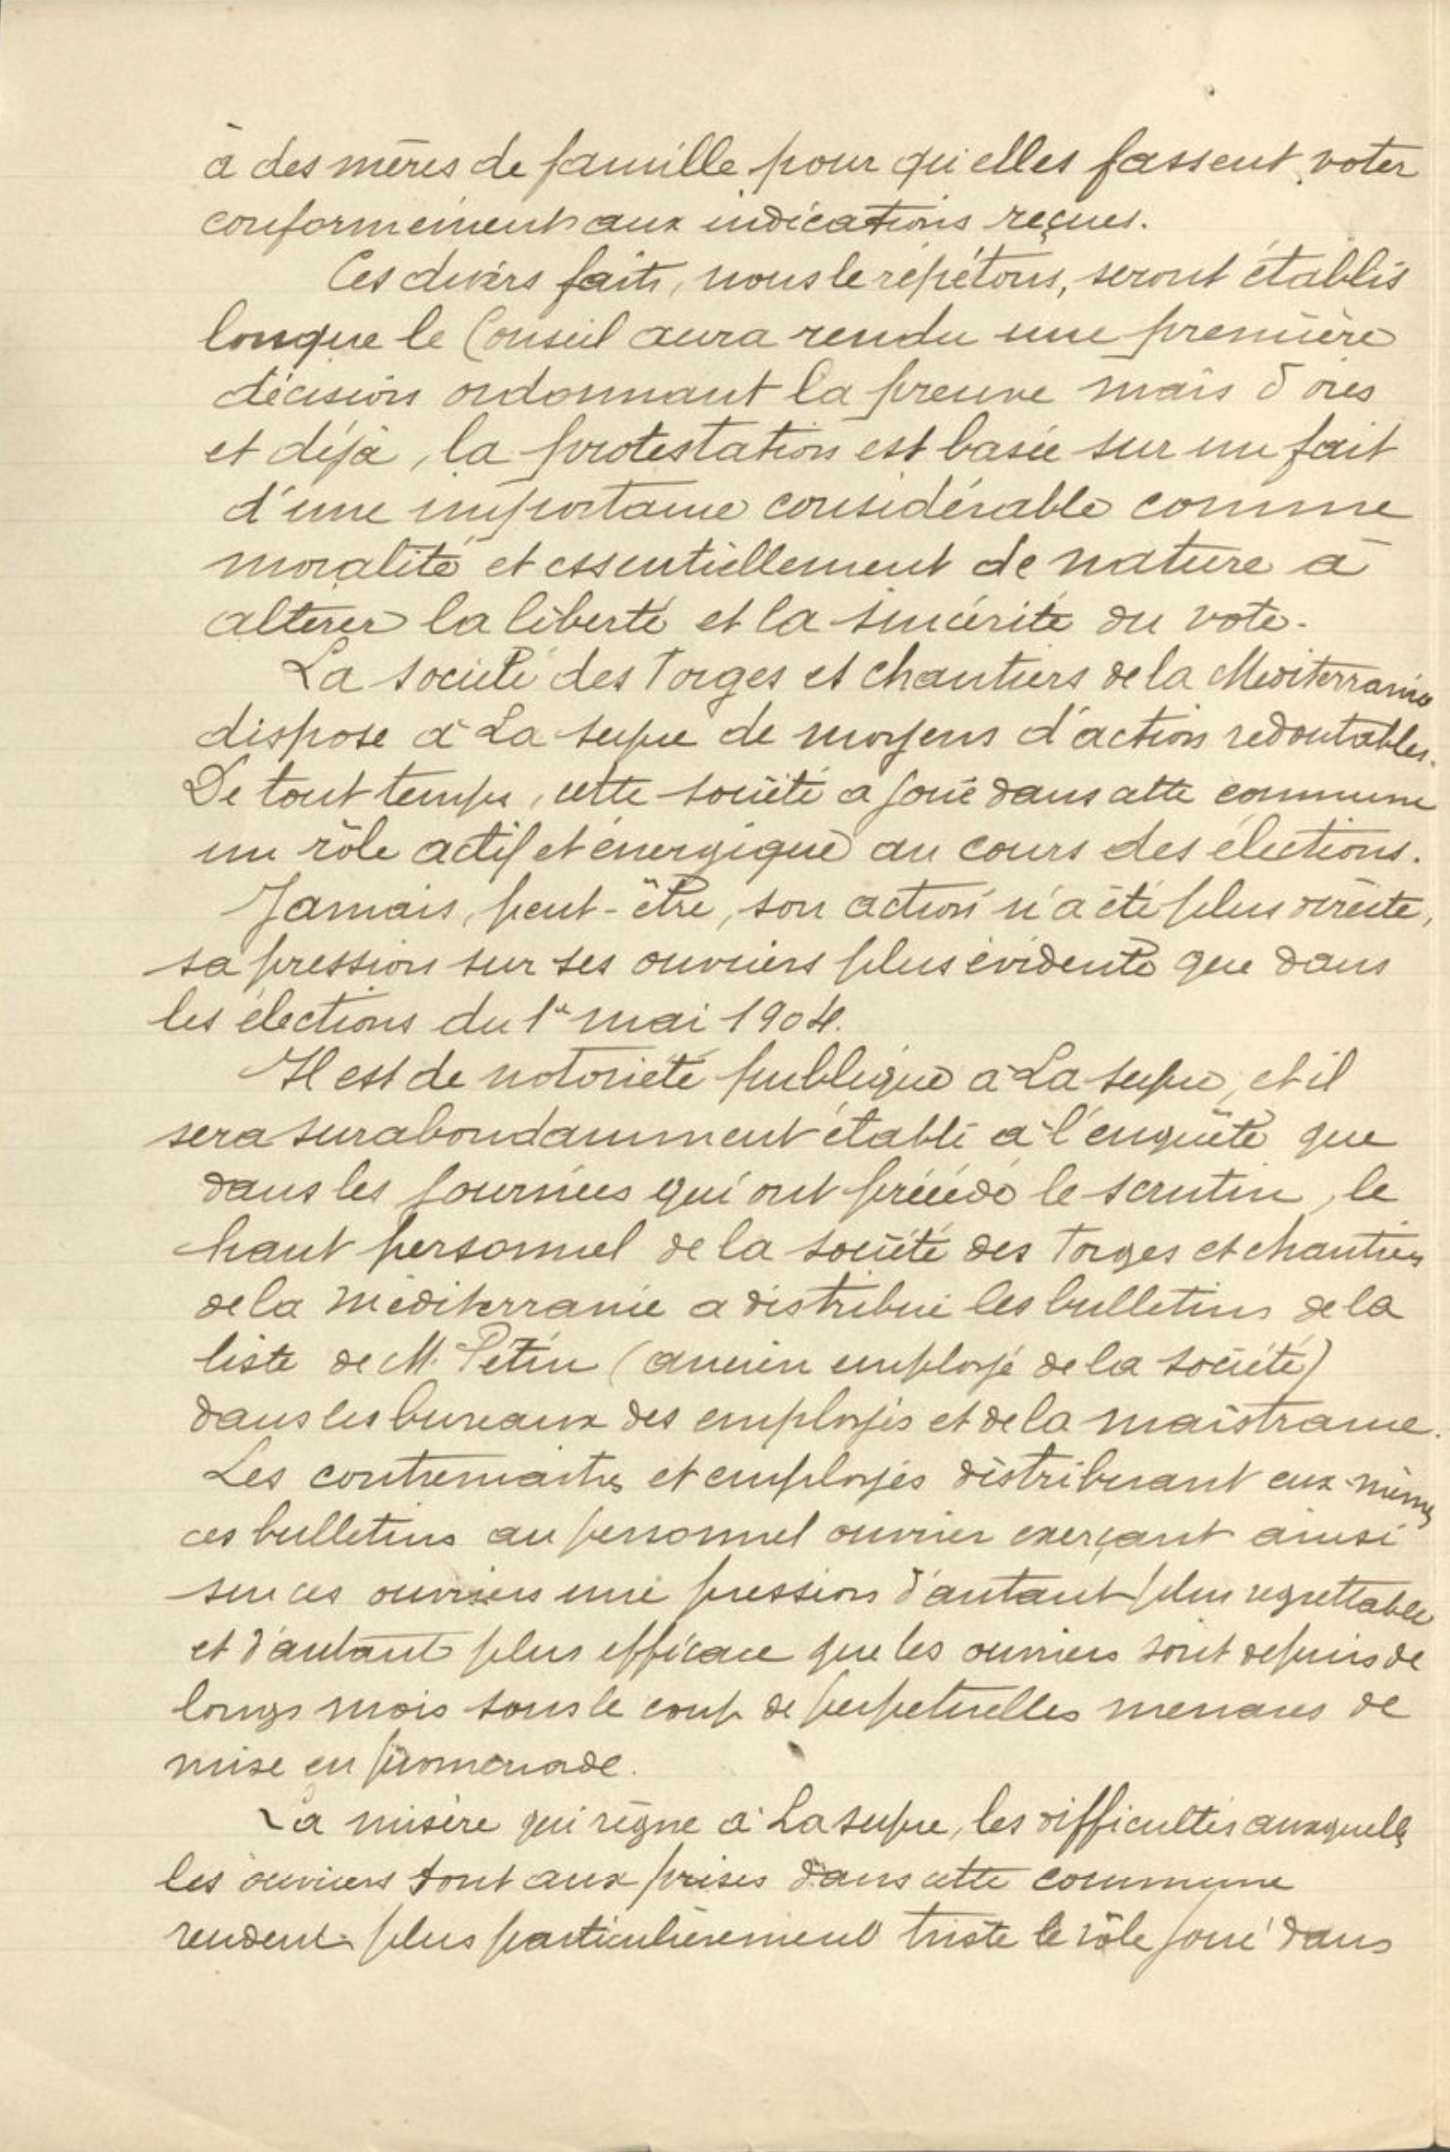 à des mères de famille pour qu'elles fassent voter
conformément aux indications reçues.
Ces divers faits, nous le répétons, seront établis
lorsque le Conseil aura rendu une première
décision ordonnant la preuve mais d'ores
et déjà, la protestation est basée sur un fait
d'une importance considérable comme
moralité et essentiellement de nature à
altérer la liberté et la sincérité du vote.
La société des Forges et chantiers de la Méditerranée
dispose à La Seyne de moyens d'action redoutables.
De tout temps, cette société a joué dans cette commune
un rôle actif et énergique au cours des élections.
Jamais, peut-être, son action n'a été plus directe,
sa pression sur ses ouvriers plus évidente que dans
les élections du 1er mai 1904.
Il est de notoriété publique à La Seyne, et il
sera surabondamment établi à l'enquête que
dans les journées qui ont précédé le scrutin, le
haut personnel de la société des Forges et chantiers
de la méditerranée a distribué les bulletins de la
liste de M. Pétin (ancien employé de la société)
dans les bureaux des employés et de la maistrance.
Les contremaitres et employés distribuant eux-mêmes
ces bulletins au personnel ouvrier exerçant ainsi
sur ces ouvriers une pression d'autant plus regrettable
et d'autant plus efficace que les ouvriers sont depuis de
longs mois sous le coup de perpétuelles menaces de
mise en promenade.
La misère qui règne à La Seyne, les difficultés auxquelles
les ouvriers sont aux prises dans cette commune
rendent plus particulièrement triste le rôle joué dans